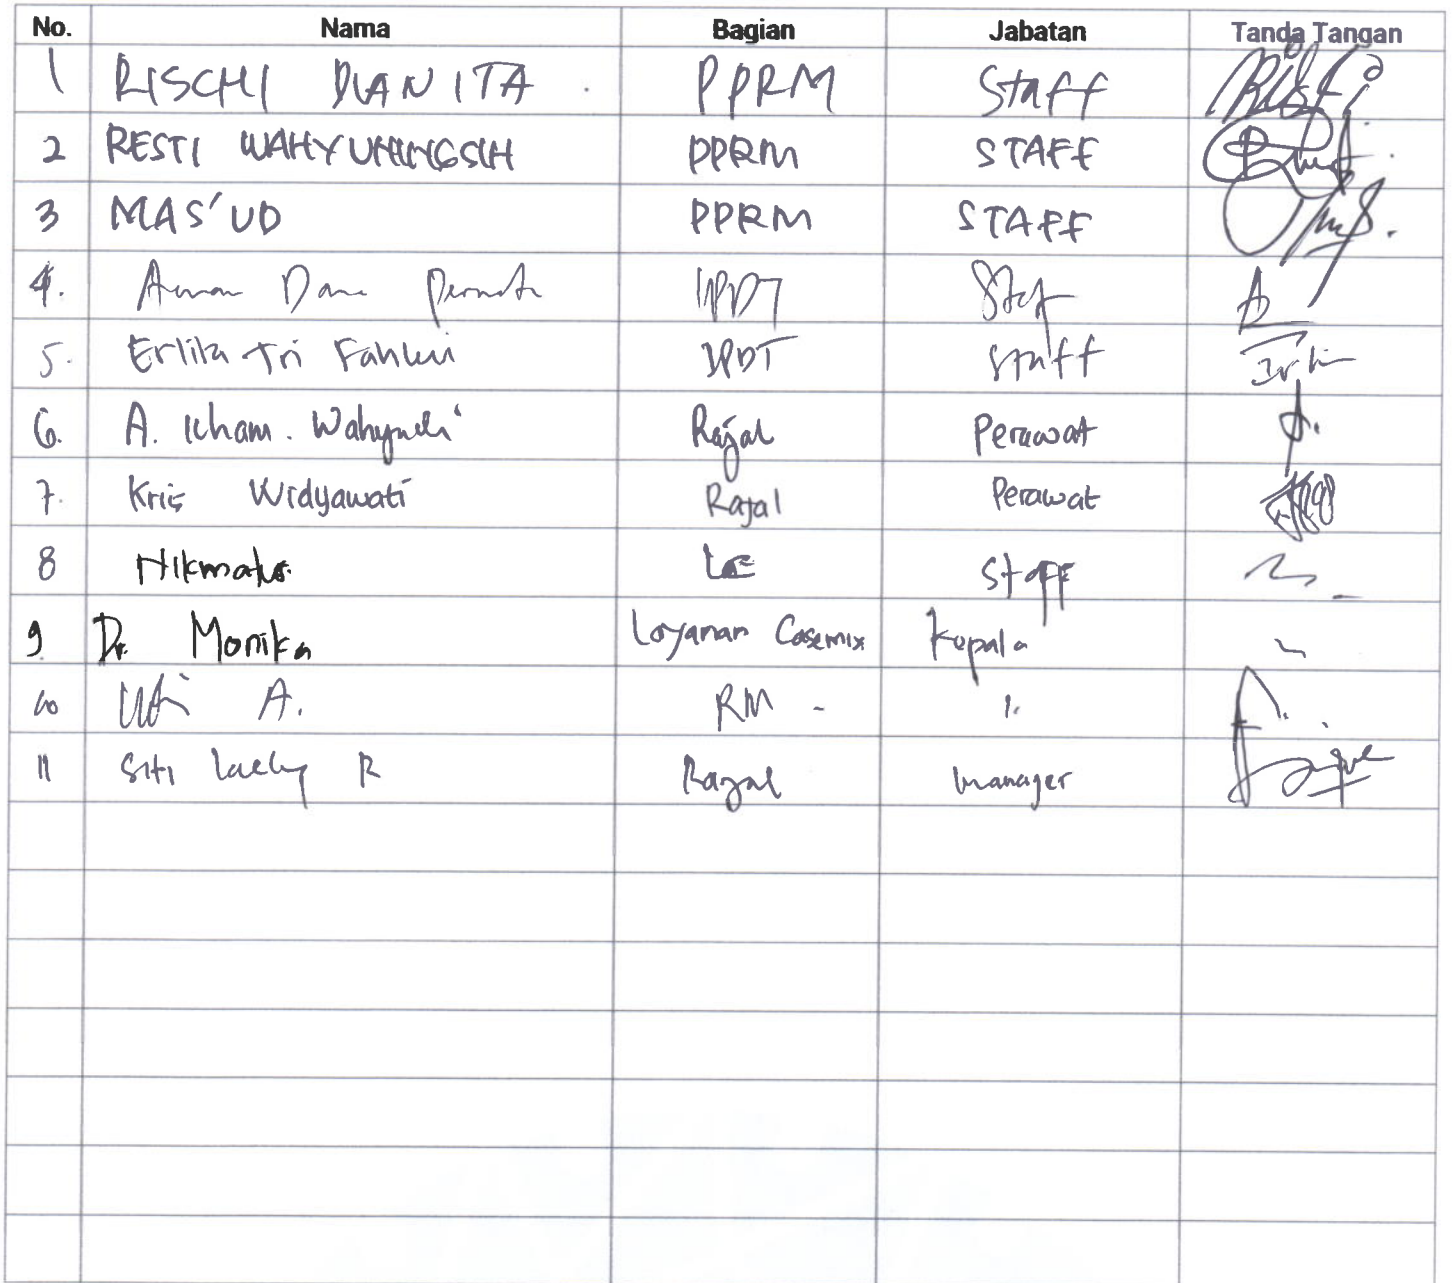 No. Nama Bagian Jabatan Tanda Tangan
1 RISCHI DIAN ITA PPRM Staff
2 RESTI WAHYUNINGSIH PPRM STAFF
3 MAS'UD PPRM STAFF
4. IPDT Staf
5. Erlita Tri IPDT Staff
6. A. Ilham. Wahyudi Rajal Perawat
7. Kris Widyawati Rajal Perawat
8 Staff
9 Dr. Monika Layanan Casemix Kepala
10 A. RM -
11 Siti R Rajal Manager